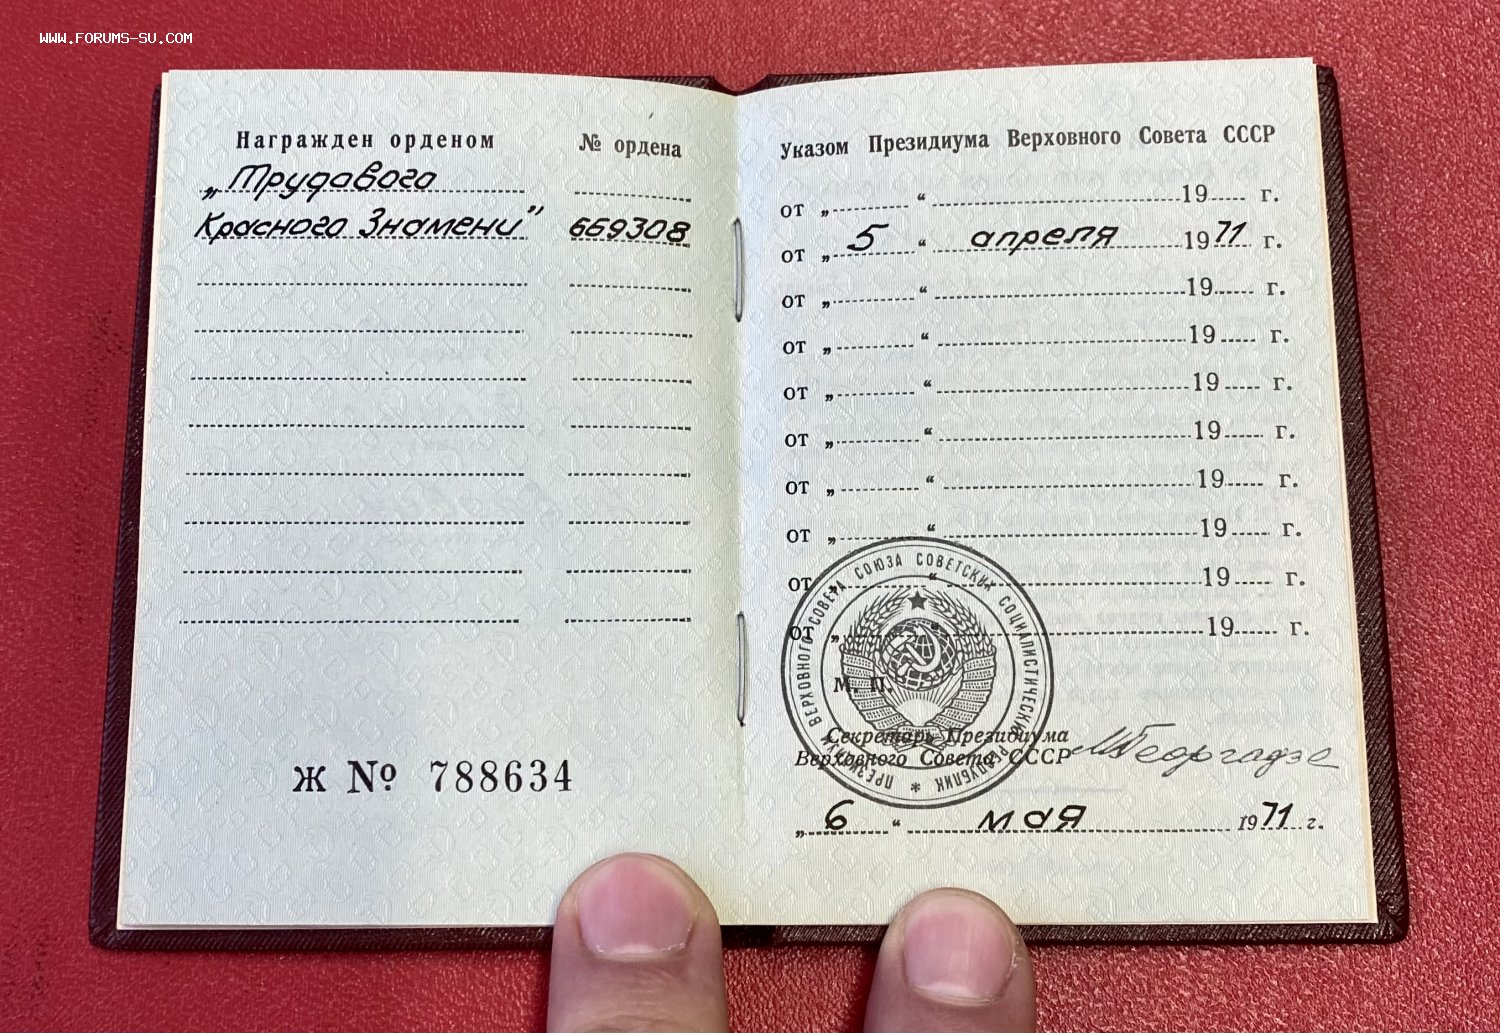 WWW.FORUMS-SU.COM
Награжден орденом № ордена
„Трудавого
Красного Знамени" 659308
Указом Президиума Верховного Совета СССР
от „ “ 19 г.
от „ 5 “ апреля 1971 г.
от „ “ 19 г.
от „ “ 19 г.
от „ “ 19 г.
от „ “ 19 г.
от „ “ 19 г.
от „ “ 19 г.
от „ “ 19 г.
от „ “ 19 г.
ПРЕЗИДИУМ ВЕРХОВНОГО СОВЕТА СОЮЗА СОВЕТСКИХ СОЦИАЛИСТИЧЕСКИХ РЕСПУБЛИК *
М. П.
Секретарь Президиума
Верховного Совета СССР МГеоргадзе
„ 6 “ мая 1971 г.
Ж № 788634